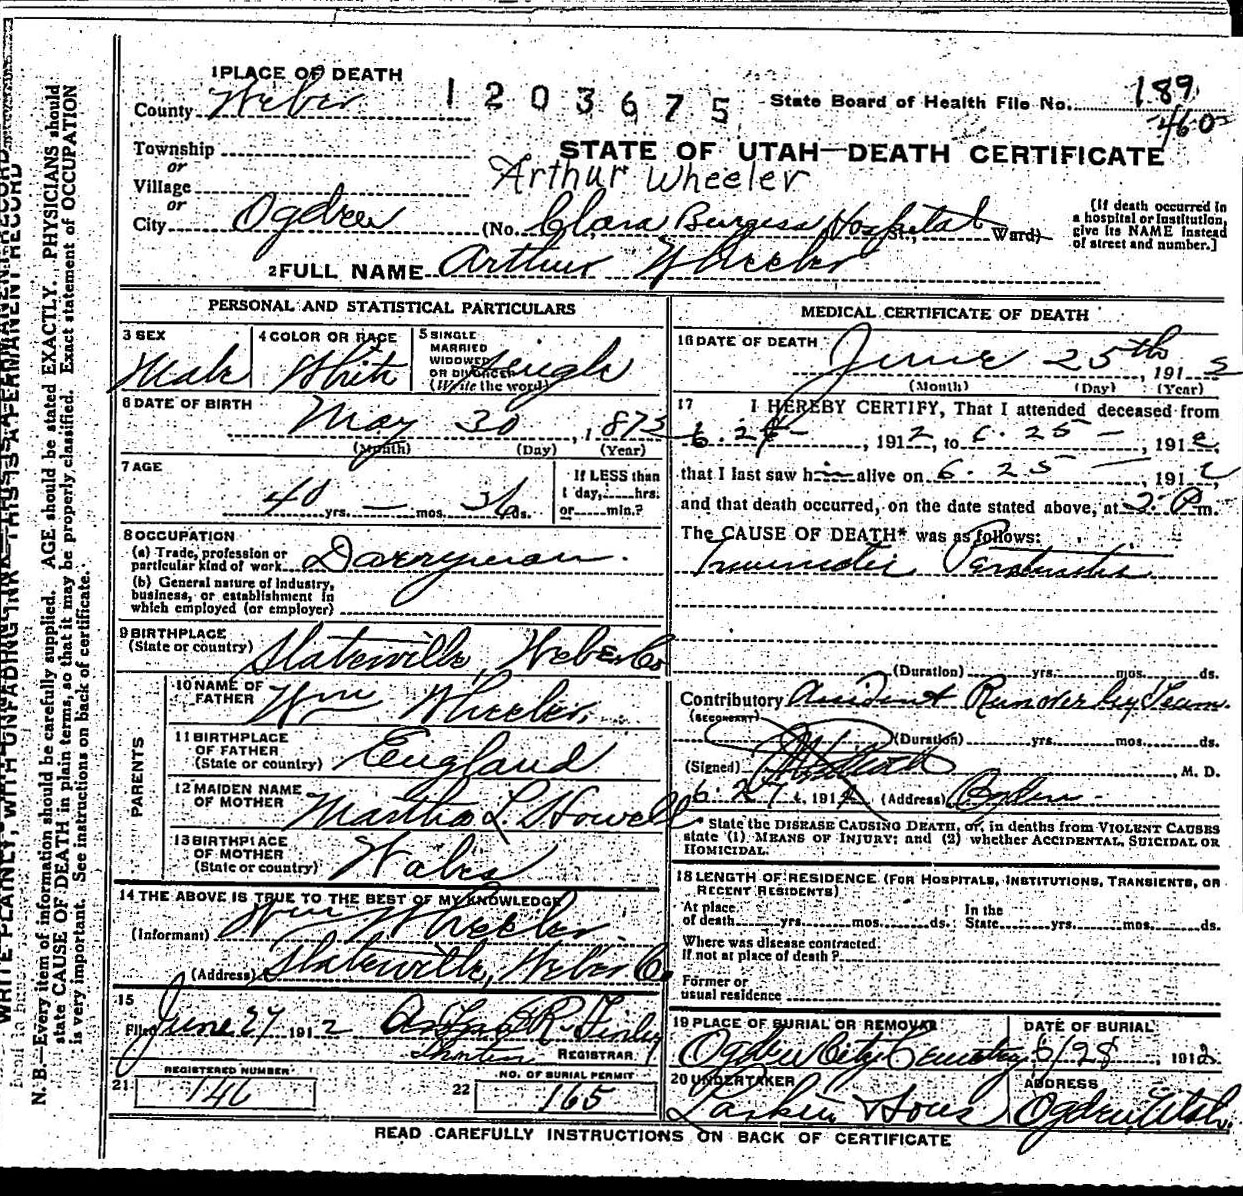 1 PLACE OF DEATH
County Weber
1203675
State Board of Health File No. 189
460
Township
or
Village
or
STATE OF UTAH—DEATH CERTIFICATE
Arthur Wheeler
City Ogden (No. Clara Burgess Hospital St., Ward)
(If death occurred in a hospital or institution, give its NAME instead of street and number.]
2 FULL NAME Arthur Wheeler
PERSONAL AND STATISTICAL PARTICULARS
3 SEX
Male
4 COLOR OR RACE
White
5 SINGLE
MARRIED
WIDOWED
OR DIVORCED
(Write the word)
Single
6 DATE OF BIRTH
May 30, 1873
(Month) (Day) (Year)
7 AGE
40 yrs. — mos. 26 ds.
If LESS than
1 day, hrs.
or min.?
8 OCCUPATION
(a) Trade, profession or
particular kind of work Dairyman.
(b) General nature of Industry,
business, or establishment in
which employed (or employer)
9 BIRTHPLACE
(State or country) Slaterville, Weber Co
PARENTS
10 NAME OF
FATHER Wm Wheeler
11 BIRTHPLACE
OF FATHER
(State or country) England
12 MAIDEN NAME
OF MOTHER Martha L. Howell
13 BIRTHPLACE
OF MOTHER
(State or country) Wales
14 THE ABOVE IS TRUE TO THE BEST OF MY KNOWLEDGE
(Informant) Wm Wheeler
(Address) Slaterville, Weber Co
15
Filed June 27 1912
REGISTRAR
REGISTERED NUMBER
21 146
NO. OF BURIAL PERMIT
22 165
MEDICAL CERTIFICATE OF DEATH
16 DATE OF DEATH
June 25th, 1912
(Month) (Day) (Year)
17 I HEREBY CERTIFY, That I attended deceased from
6.24, 1912, to 6.25, 1912,
that I last saw him alive on 6.25, 1912,
and that death occurred, on the date stated above, at 2. P m.
The CAUSE OF DEATH* was as follows:
Traumatic Peritonitis
(Duration) yrs. mos. ds.
Contributory Accident Run over by Team.
(SECONDARY)
(Duration) yrs. mos. ds.
(Signed) , M. D.
6.27, 1912 (Address) Ogden
* State the DISEASE CAUSING DEATH, or, in deaths from VIOLENT CAUSES
state (1) MEANS OF INJURY; and (2) whether ACCIDENTAL, SUICIDAL OR
HOMICIDAL.
18 LENGTH OF RESIDENCE (FOR HOSPITALS, INSTITUTIONS, TRANSIENTS, OR
RECENT RESIDENTS)
At place
of death yrs. mos. ds.
In the
State yrs. mos. ds.
Where was disease contracted
If not at place of death?
Former or
usual residence
19 PLACE OF BURIAL OR REMOVAL
Ogden City Cemetery
DATE OF BURIAL
6/28, 1912
20 UNDERTAKER
Larkin & Sons
ADDRESS
Ogden, Utah.
READ CAREFULLY INSTRUCTIONS ON BACK OF CERTIFICATE
N. B.—Every item of information should be carefully supplied. AGE should be stated EXACTLY. PHYSICIANS should
state CAUSE OF DEATH in plain terms, so that it may be properly classified. Exact statement of OCCUPATION
is very important. See instructions on back of certificate.